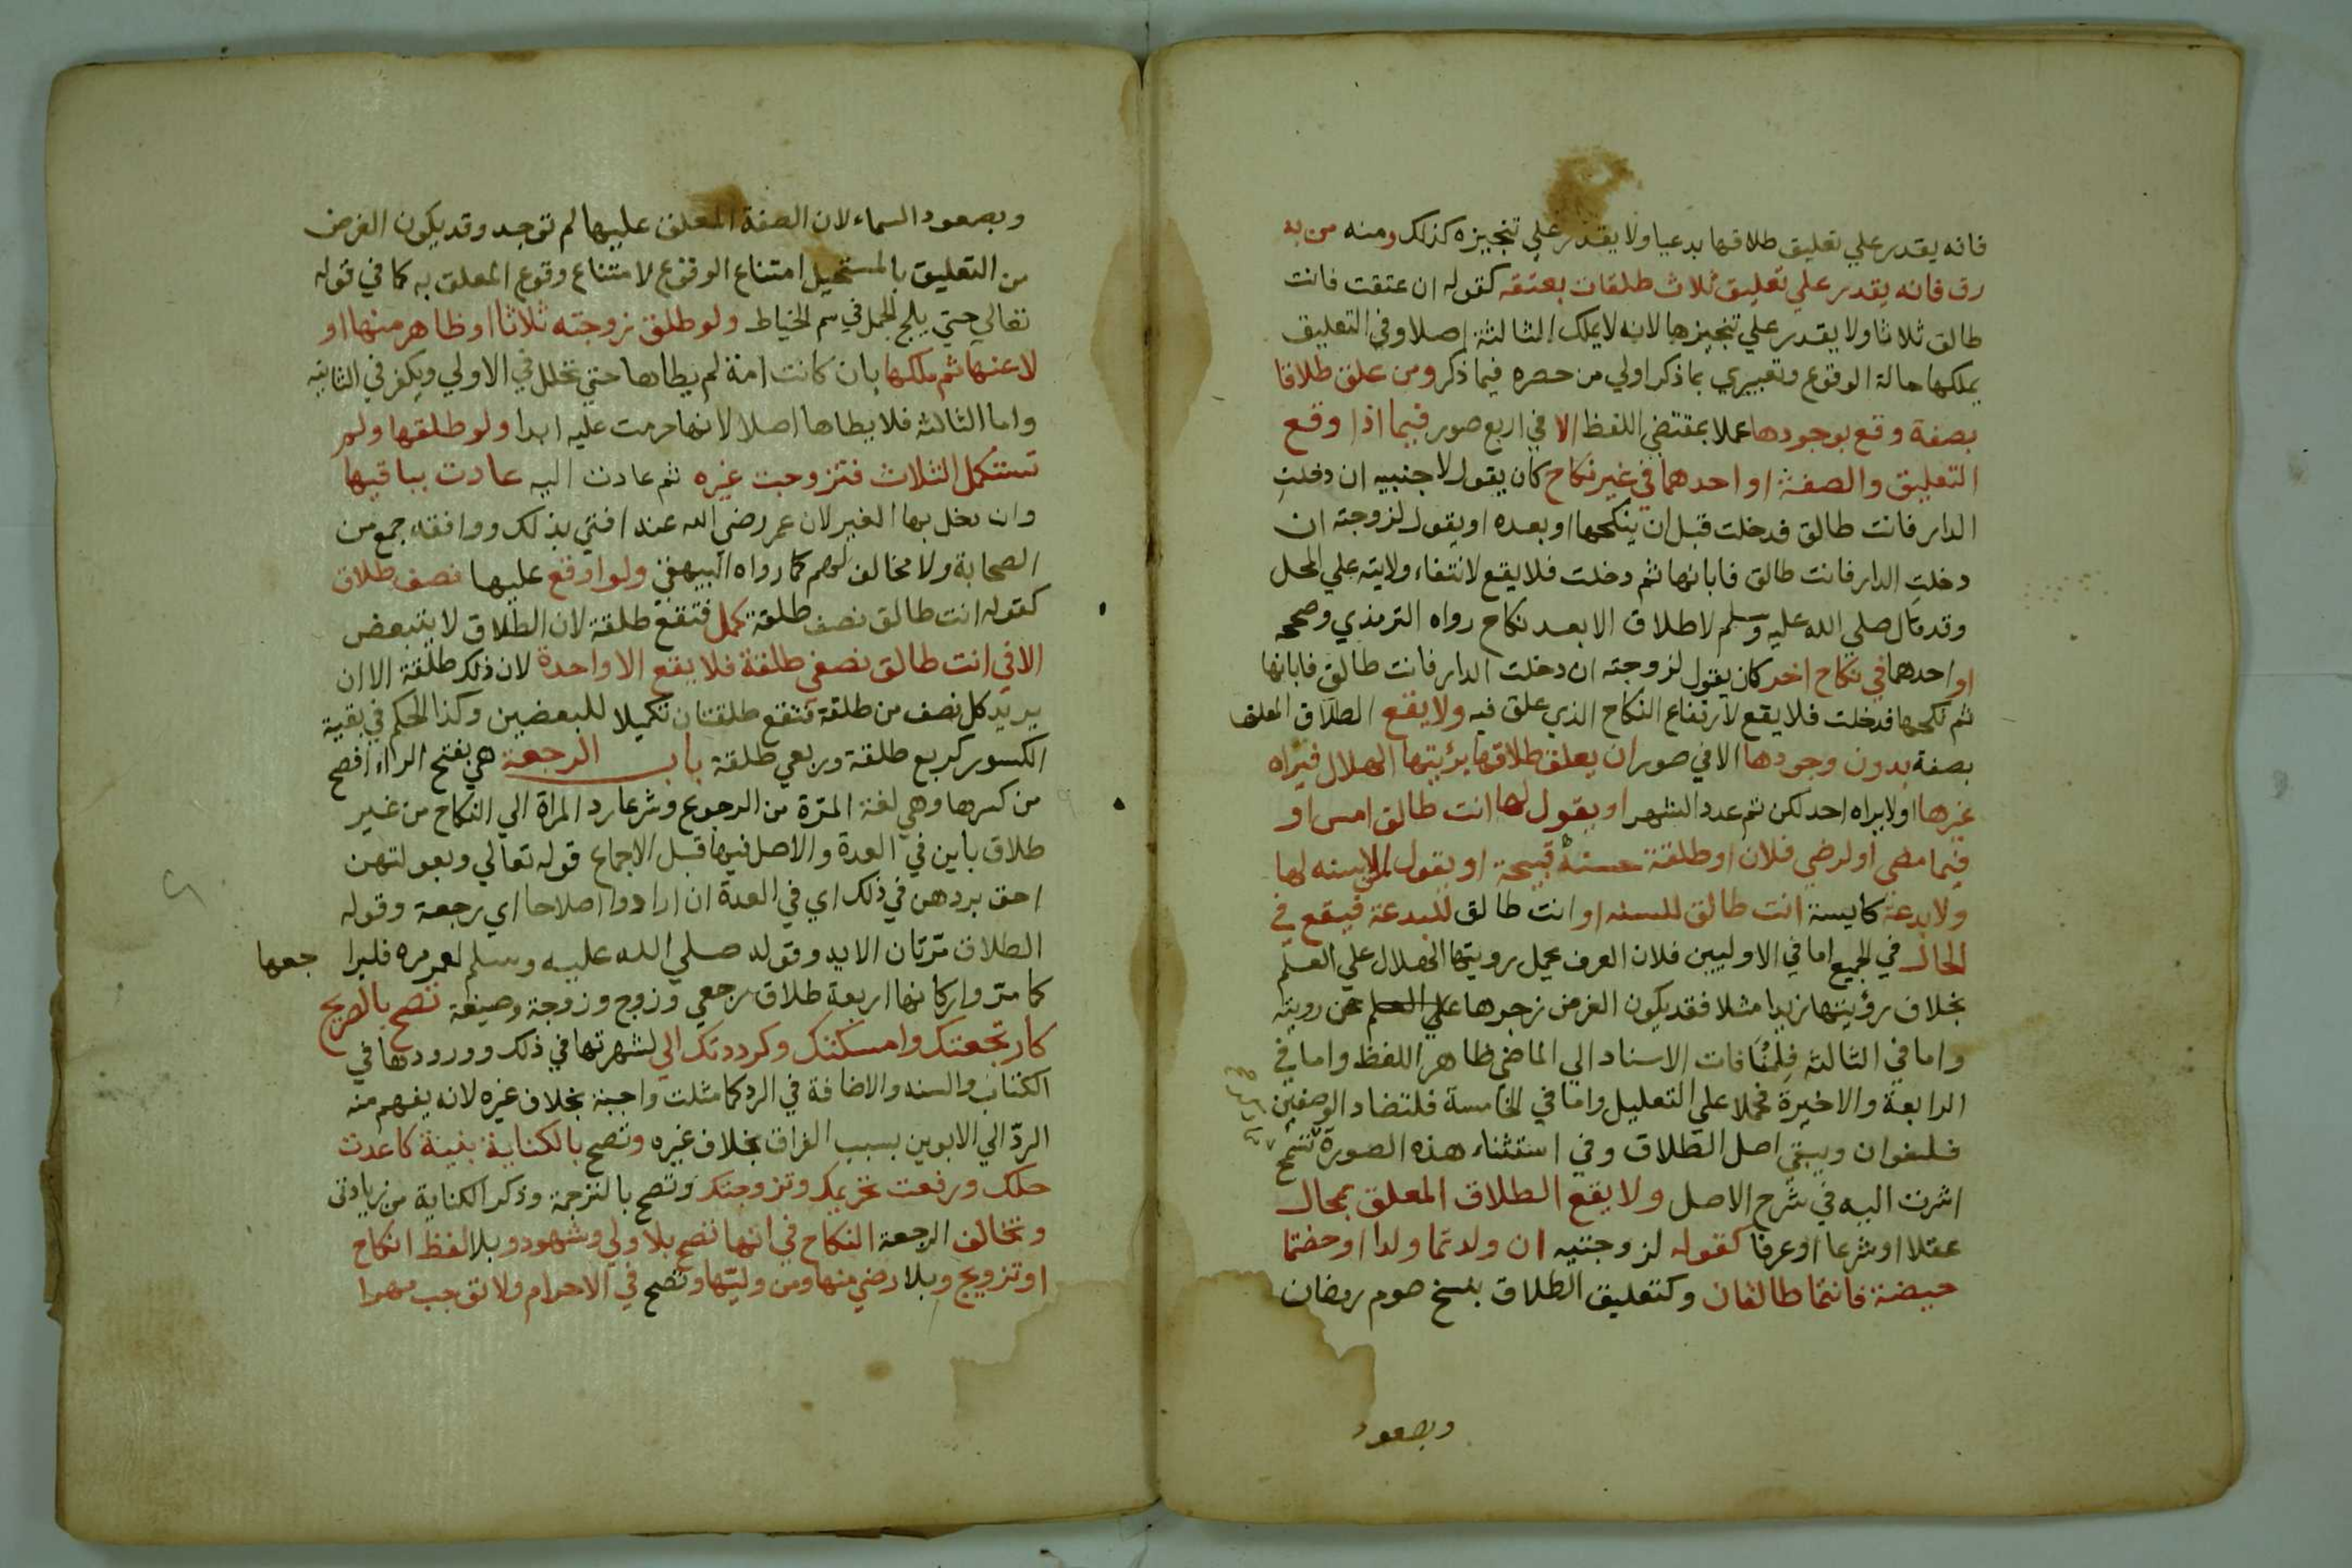 فانه يقدر علي تعليق طلاقها بدعيا ولا يقدر علي تنجيزه كذلك ومنه من به
رق فانه يقدر علي تعليق ثلاث طلقات بعتقه كقوله ان عتقت فانت
طالق ثلاثا ولا يقدر علي تنجيزها لانه لا يملك الثالثة اصلا وفي التعليق
يملكها حالة الوقوع وتعبيري بما ذكر اولي من حصره فيما ذكر ومن علق طلاقا
بصفة وقع بوجودها عملا بمقتضي اللفظ الا في اربع صور فيما اذا وقع
التعليق والصفة او احدهما في غير نكاح كان يقول لاجنبيه ان دخلتِ
الدار فانت طالق فدخلت قبل ان ينكحها او بعده او يقول لزوجته ان
دخلتِ الدار فانت طالق فابانها ثم دخلت فلا يقع لانتفاء ولايته علي المحل
وقد قال صلي الله عليه وسلم لا طلاق الا بعد نكاح رواه الترمذي وصححه
او احدهما في نكاح اخر كان يقول لزوجته ان دخلت الدار فانت طالق فابانها
ثم نكحها فدخلت فلا يقع لارتفاع النكاح الذي علق فيه ولا يقع الطلاق المعلق
بصفة بدون وجودها الا في صور ان يعلق طلاقها برؤيتها الهلال فيراه
غيرها او لا يراه احد لكن تم عدد الشهر او يقول لها انت طالق امس او
فيما مضي او لرضي فلان او طلقة حسنة قبيحة او يقول لمن لا سنه لها
ولا بدعة كايسة انت طالق للسنه او انت طالق للبدعة فيقع في
الحال في الجميع اما في الاوليين فلان العرف يحمل رويتها الهلال علي العلم
بخلاف رؤيتها زيدا مثلا فقد يكون الغرض زجرها علي العلم عن رويته
واما في الثالثه فلمنافات الاسناد الي الماضي ظاهر اللفظ واما في
الرابعة والاخيرة فحملا علي التعليل واما في الخامسة فلتضاد الوصفين
فيلغوان ويبقي اصل الطلاق وفي استثناء هذه الصورة تسمح
اشرت اليه في شرح الاصل ولا يقع الطلاق المعلق بمحال
عقلا او شرعا او عرفا كقوله لزوجتيه ان ولدتما ولدا او حضتما
حيضة فانتما طالقان وكتعليق الطلاق بنسخ صوم رمضان
وبصعود
وبصعود السماء لان الصفة المعلق عليها لم توجد وقد يكون الغرض
من التعليق بالمستحيل امتناع الوقوع لامتناع وقوع المعلق به كما في قوله
تعالي حتي يلج الجمل في سم الخياط ولو طلق زوجته ثلاثا او ظاهر منها او
لاعنها ثم ملكها بان كانت امة لم يطاها حتي تحلل في الاولي ويكفر في الثانيه
واما الثالثه فلا يطاها اصلا لانها حرمت عليه ابدا ولو طلقها ولم
تستكمل الثلاث فتزوجت غيره ثم عادت اليه عادت بباقيها
وان دخل بها الغير لان عمر رضي الله عنه افتي بذلك ووافقه جمع من
الصحابة ولا مخالف لهم كما رواه البيهقي ولو اوقع عليها نصف طلاق
كقوله انت طالق نصف طلقة كمل فتقع طلقة لان الطلاق لا يتبعض
الا في انت طالق نصفي طلقة فلا يقع الا واحدة لان ذلك طلقة الا ان
يريد كل نصف من طلقة فتقع طلقتان تكميلا للبعضين وكذا الحكم في بقية
الكسور كربع طلقة وربعي طلقة باب الرجعة هي بفتح الراء افصح
من كسرها وهي لغة المرّة من الرجوع وشرعا رد المراة الي النكاح من غير
طلاق باين في العدة والاصل فيها قبل الاجماع قوله تعالي وبعولتهن
احق بردهن في ذلك اي في العدة ان ارادوا اصلاحا اي رجعة وقوله
الطلاق مرّتان الايه وقوله صلي الله عليه وسلم لعمر مره فليراجعها
كما مرّ واركانها اربعة طلاق رجعي وزوج وزوجة وصيغة تصح بالصريح
كارتجعتك وامسكتك وكرددتك الي لشهرتها في ذلك وورودها في
الكتاب والسنه والاضافة في الرد كما مثلت واجبة بخلاف غيره لانه يفهم منه
الردّ الي الابوين بسبب الفراق بخلاف غيره وتصح بالكناية بنية كاعدت
حلك ورفعت تحريمك وتزوجتك وتصح بالترجمة وذكر الكناية من زيادتي
وتخالف الرجعة النكاح في انها تصح بلا ولي وشهود وبلا لفظ انكاح
او تزويج وبلا رضي منها ومن وليّها وتصح في الاحرام ولا توجب مهرا